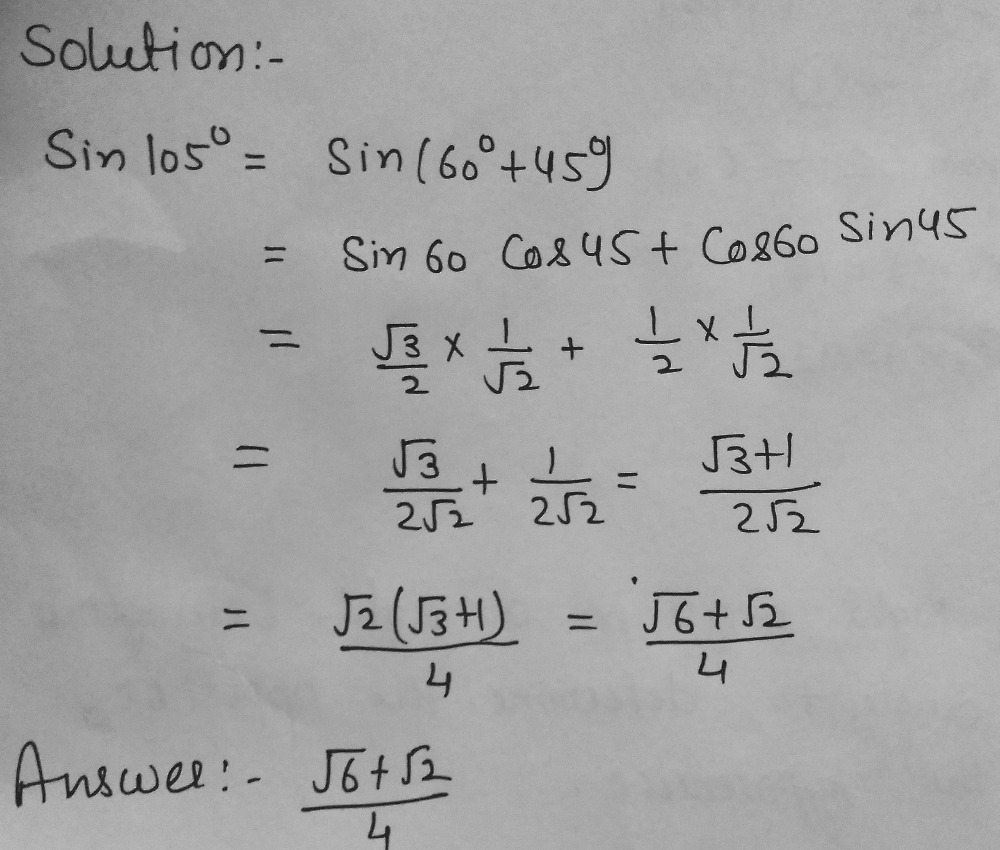 Solution:-
Sin 105° = Sin(60°+45°)
= Sin 60 Cos 45 + Cos60 Sin45
= √3/2 × 1/√2 + 1/2 × 1/√2
= √3/2√2 + 1/2√2 = √3+1/2√2
= √2(√3+1)/4 = √6+√2/4
Answer:- √6+√2/4